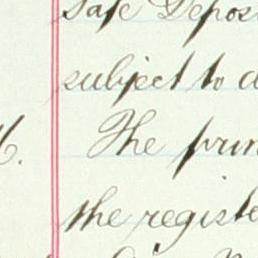 Safe Depos
subject to d
The prin
the registe